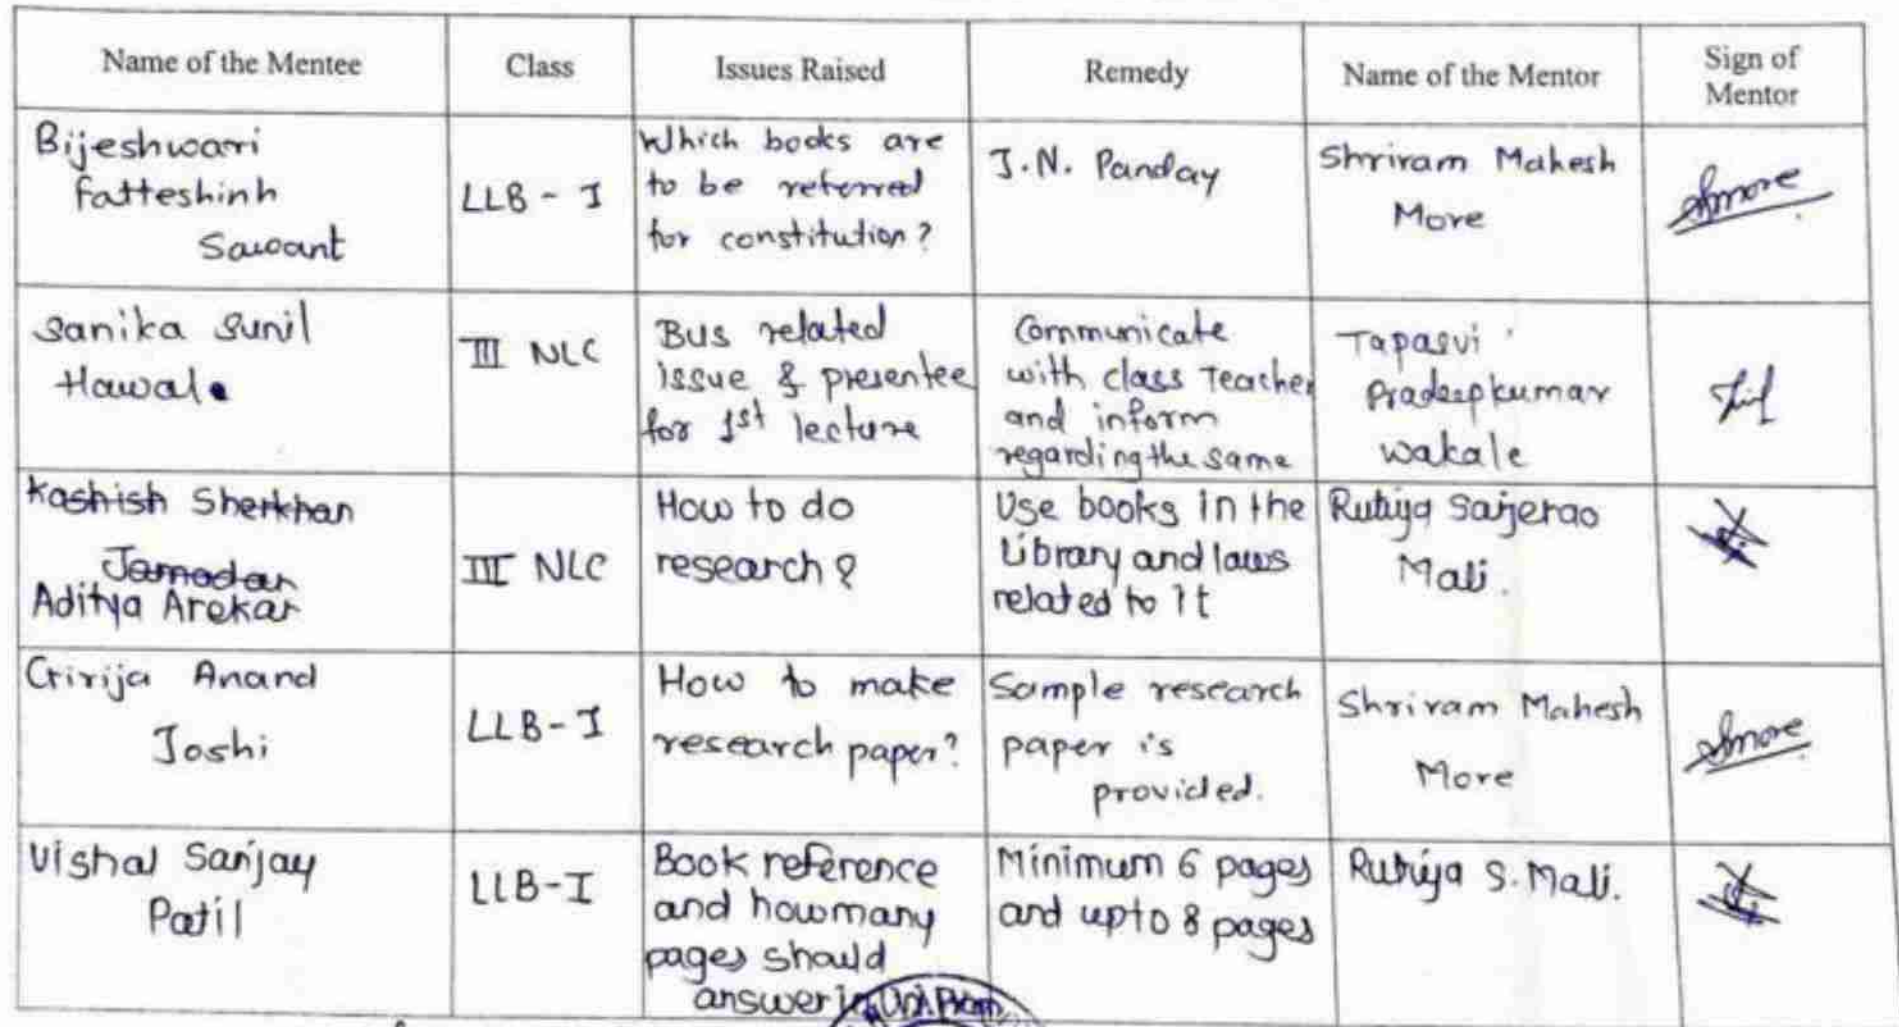 Name of the Mentee
Class
Issues Raised
Remedy
Name of the Mentor
Sign of
Mentor
Bijeshwari
Fatteshinh
Sawant
LLB - I
Which books are
to be referred
for constitution?
J.N. Panday
Shriram Mahesh
More
Smore
Sanika Sunil
Hawale
III NLC
Bus related
issue & presentee
for 1st lecture
Communicate
with class Teacher
and inform
regarding the same
Tapasvi
Pradeepkumar
wakale
Kashish Sherkhan
Jamadar
Aditya Arekar
III NLC
How to do
research?
Use books in the
Library and laws
related to it
Rutuja Sarjerao
Mali.
Girija Anand
Joshi
LLB-I
How to make
research paper?
Sample research
paper is
provided.
Shriram Mahesh
More
Smore
Vishal Sanjay
Patil
LLB-I
Book reference
and howmany
pages should
answer
Minimum 6 pages
and upto 8 pages
Rutuja S. Mali.